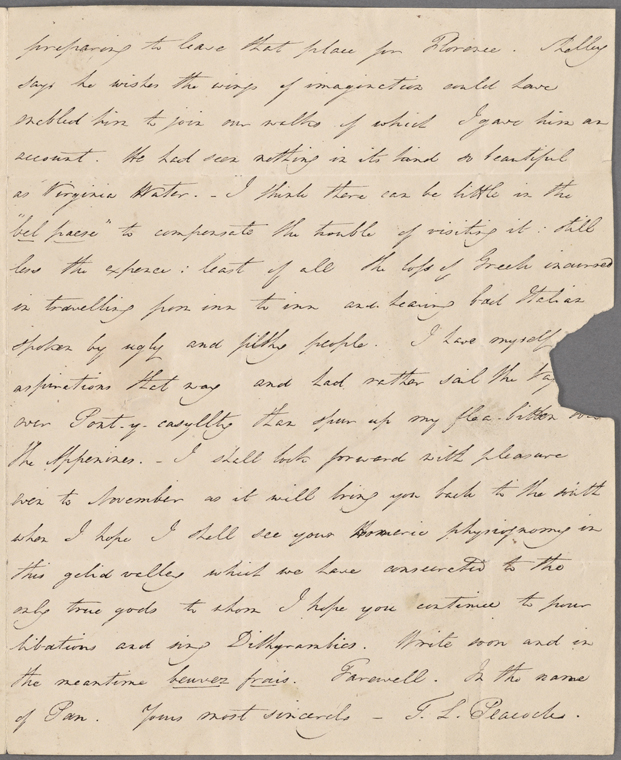 preparing to leave that place for Florence. Shelley
says he wishes the wings of imagination could have
enabled him to join our walks of which I gave him an
account. He had seen nothing in its kind so beautiful
as Virginia Water. - I think there can be little in the
"bel paese" to compensate the trouble of visiting it: still
less the expence: least of all the loss of Greek incurred
in travelling from inn to inn and hearing bad Italian
spoken by ugly and filthy people. I have myself
aspirations that way and had rather sail the
over Pont-y-casyllty than spur up my flea-bitten
the Appenines. - I shall look forward with pleasure
even to November as it will bring you back to the south
when I hope I shall see your Homeric physiognomy in
this gelid valley which we have consecrated to the
only true gods to whom I hope you continue to pour
libations and sing Dithyrambics. Write soon and in
the meantime beuvez frais. Farewell. In the name
of Pan. Yours most sincerely - T. L. Peacock.